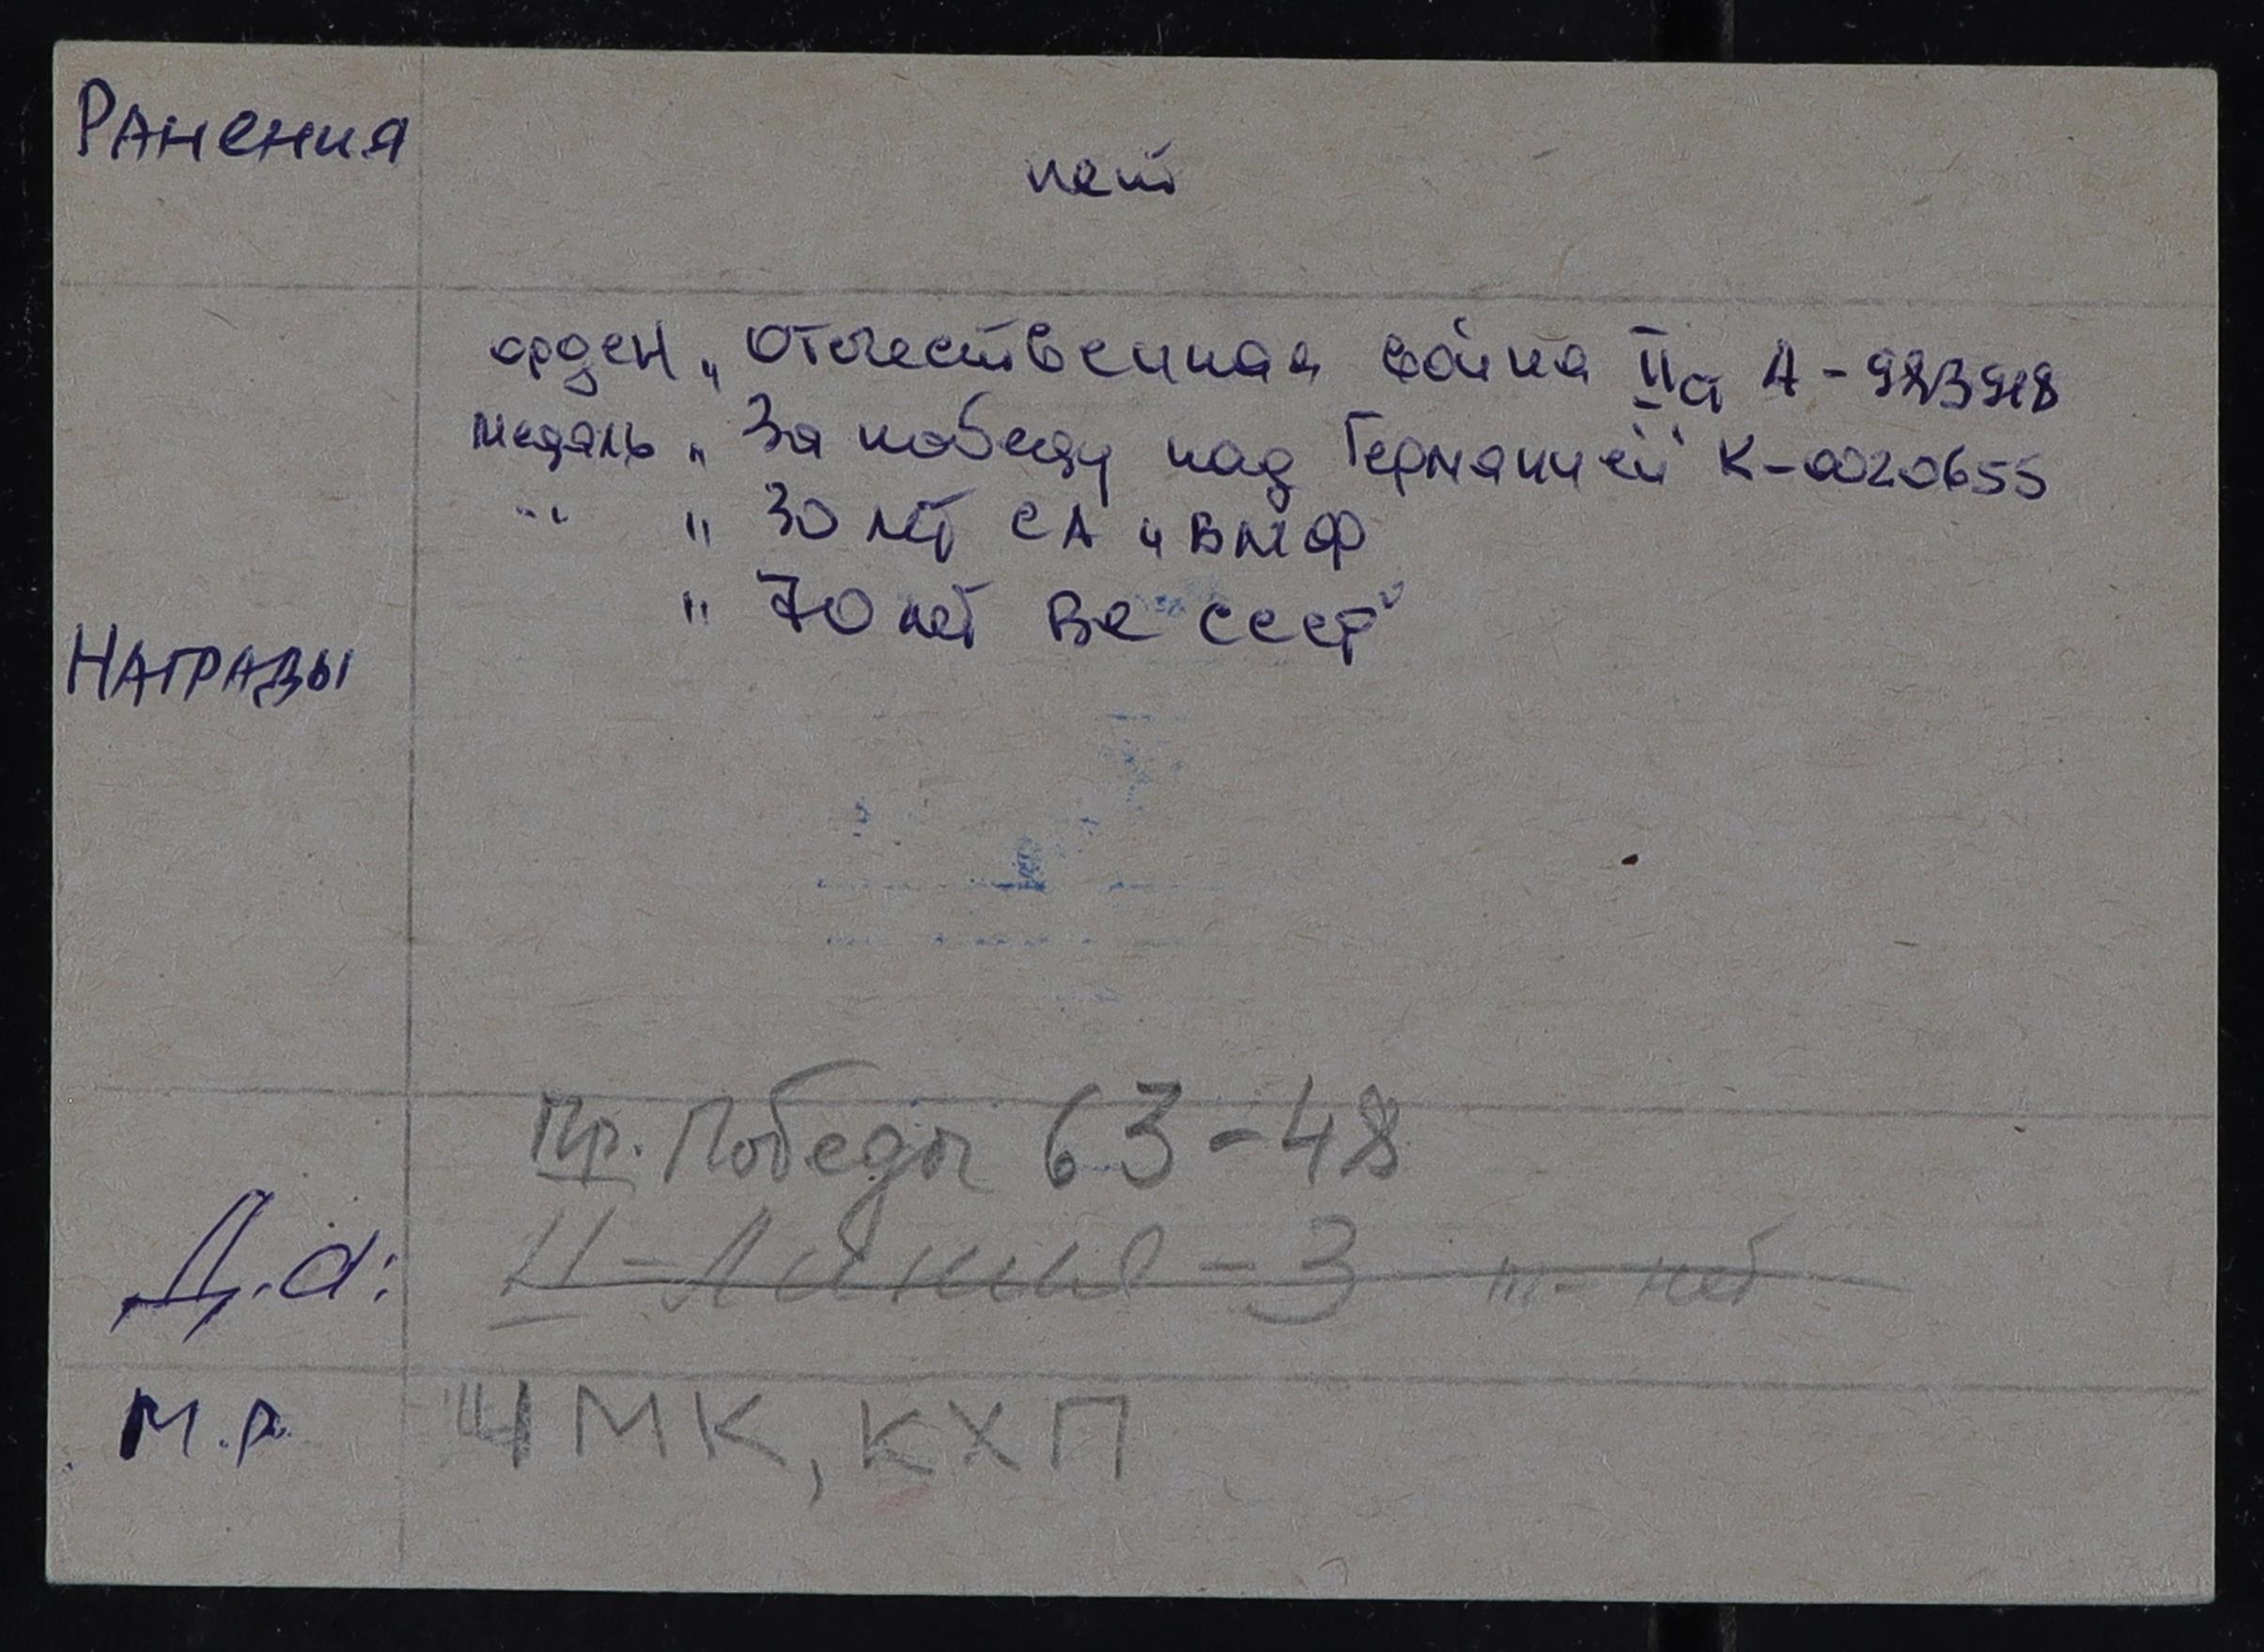 Ранения
нет
орден „Отечественная война II
медаль „За победу над Германией" К-0020655
-"- " 30 лет СА и ВМФ
" 70 лет ВС СССР"
Награды
Пр. Победы 63-48
Д.а:
II-Линия-3 т- нет
М.р. ЧМК, КХП